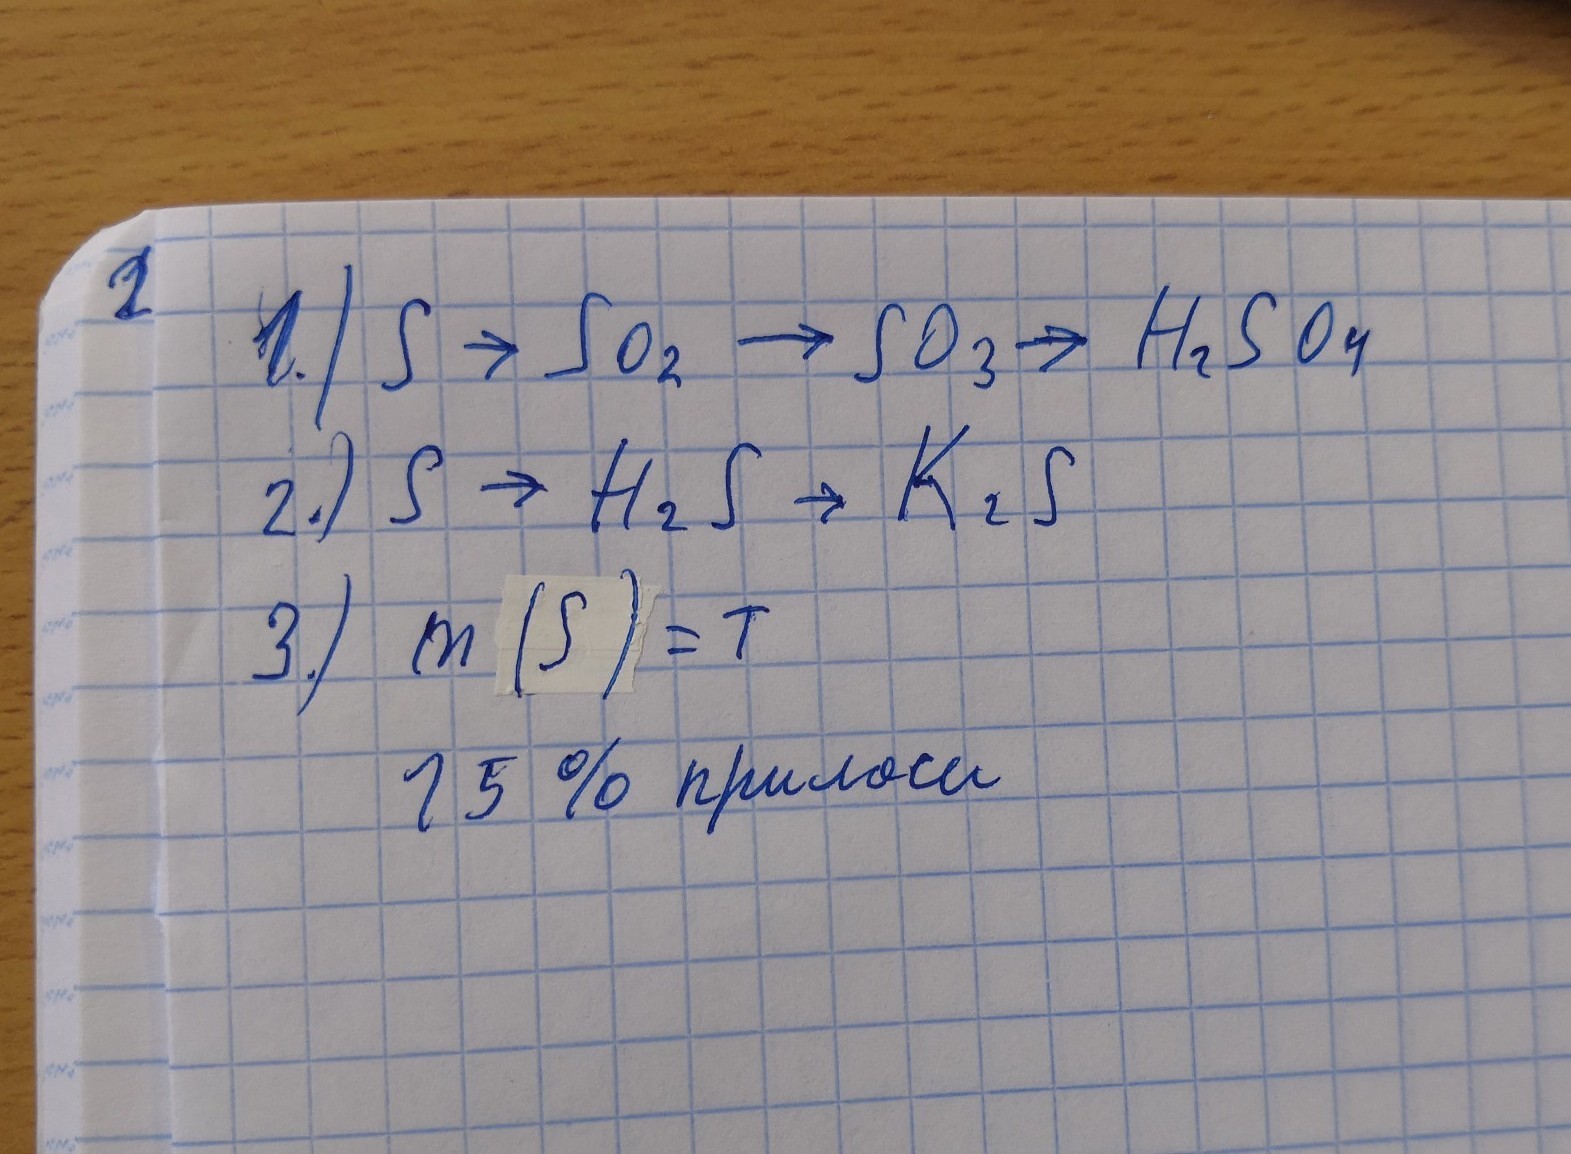 2
1.) S → SO₂ → SO₃ → H₂SO₄
2.) S → H₂S → K₂S
3.) m (S) = т
15 % прилоси